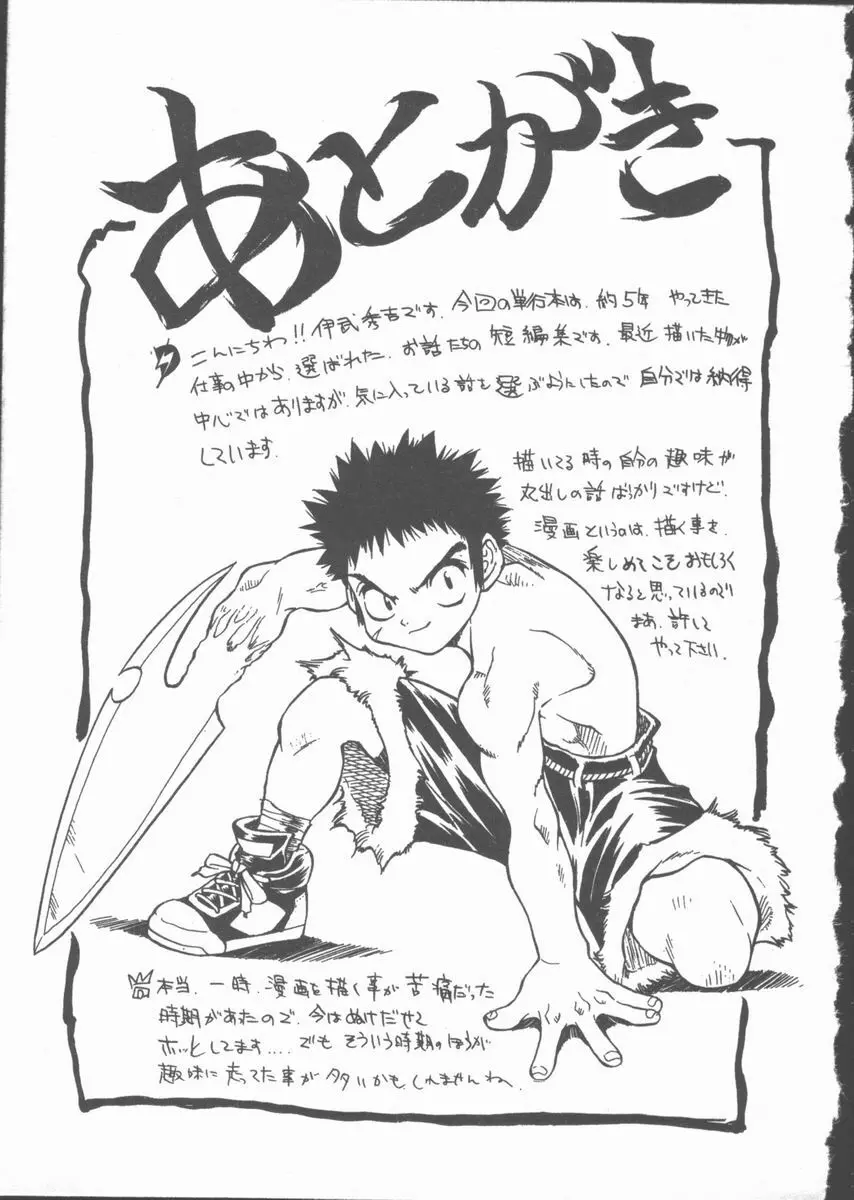 あとがき
こんにちわ!!伊武秀吉です。今回の単行本は、約5年 やってきた
仕事の中から、選ばれた、お話たちの短編集です。最近描いた物が
中心ではありますが、気に入っている話を選ぶようにしたので 自分では納得
しています。
描いてる時の自分の趣味が
丸出しの話ばっかりですけど、
漫画というのは、描く事を、
楽しめてこそおもしろく
なると思っているので
まあ、許して
やって下さい。
本当、一時、漫画を描く事が苦痛だった
時期があたので、今はぬけだせて
ホッとしてます....でもそういう時期のほうが
趣味に走ってた事が多いかもしれませんね。